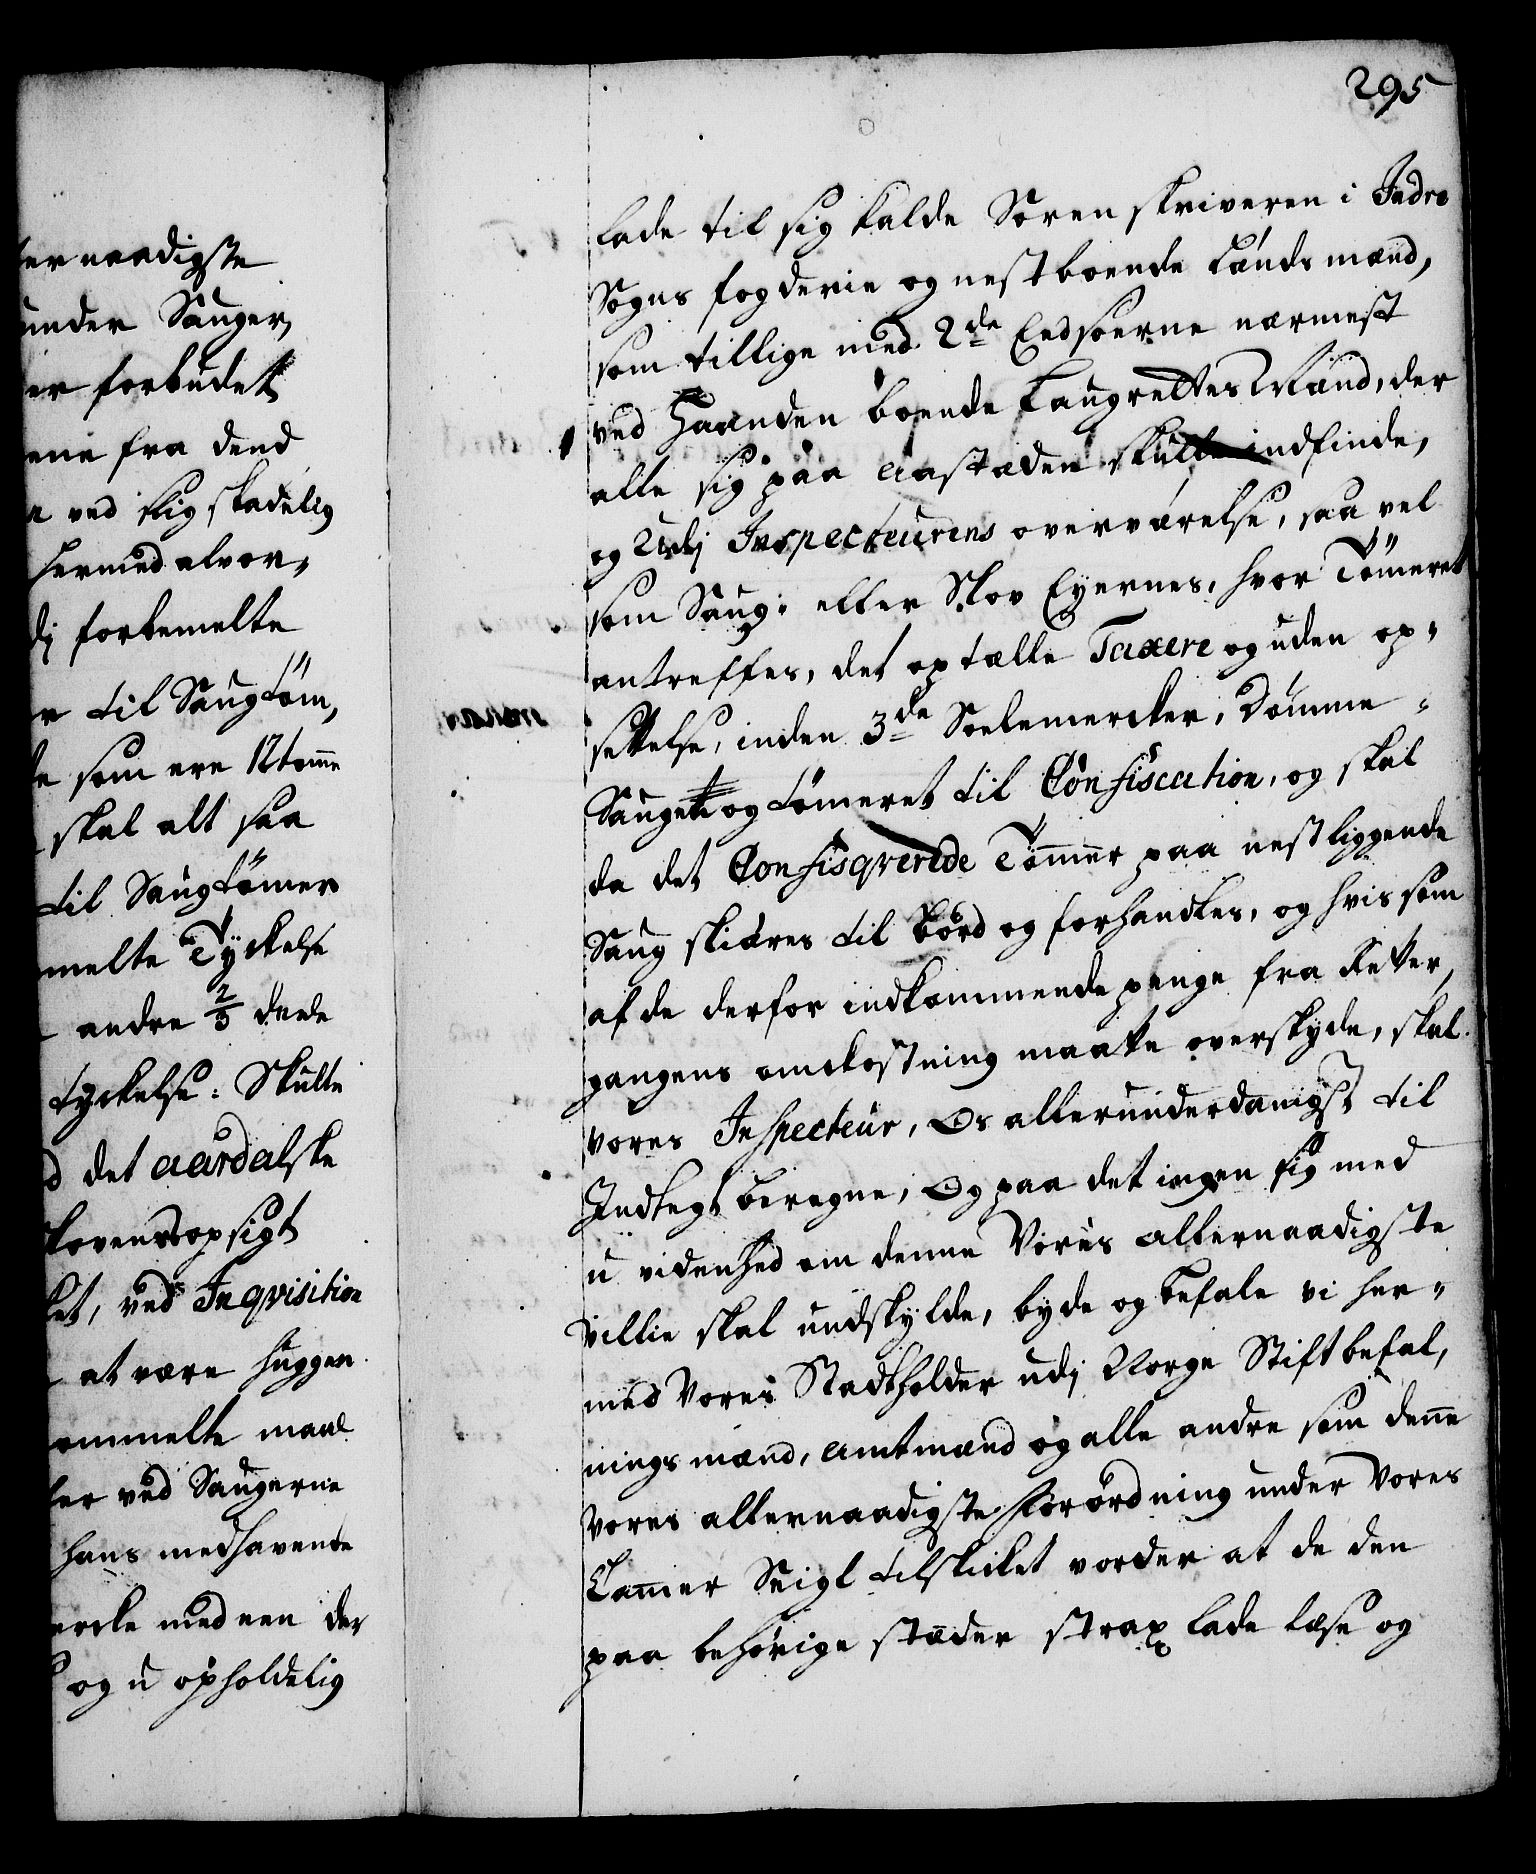 ernaadigste
under Sauger,
er forbudet
ene fra dend
ved slig skadelig
hermed alvor,,
dj forbemelte
r til Saugtöm,
e som ere 12 tomme
skal alt saa
til Saugtömer
melte Tyckelse
andre 2/3 deele
tyckelse: Skulle
d det aardalske
kovens opsigt
ket, ved Inqvisition
at være huggen
ommelte maal
ler ved Saugerne
hans medhavende
ercke med een der
og u opholdelig
295
lade til sig kalde Sorenskriveren i Indre
Sogns fogderie og nestboende Lændsmænd,
som tillige med 2de Eedsoerne nærmest
ved Haanden boende Laugrettes Mænd, der
alle sig paa aastæden skulle indfinde,
og Udj Inspecteurens overværelse, saa vel
som Saug: eller Skov Eyernes, hvor Tömeret
antreffes, det optælle Taxere og uden op,,
settelse, inden 3de Soelemercker, Dömme
Saugen og tömeret til Confiscation, og skal
da det Confisqverede Tömmer paa nestliggende
Saug skiæres til Bord og forhandles, og hvis som
af de derfor indkommende penge fra Retter,
gangens omkostning maatte overskyde, skal
vores Inspecteur, Os allerunderdanigst til
Indtegt beregne, Og paa det ingen sig med
u videnhed om denne Vores allernaadigste
Villie skal undskylde, byde og befale vi her,,
med Vores Stadtholder udj Norge Stiftbefal,
ningsmænd, amtmænd og alle andre som denne
Vores allernaadigste Forordning under Vores
Camer Seigl tilskicket vorder at de den
paa behörige stæder strax lade læse og